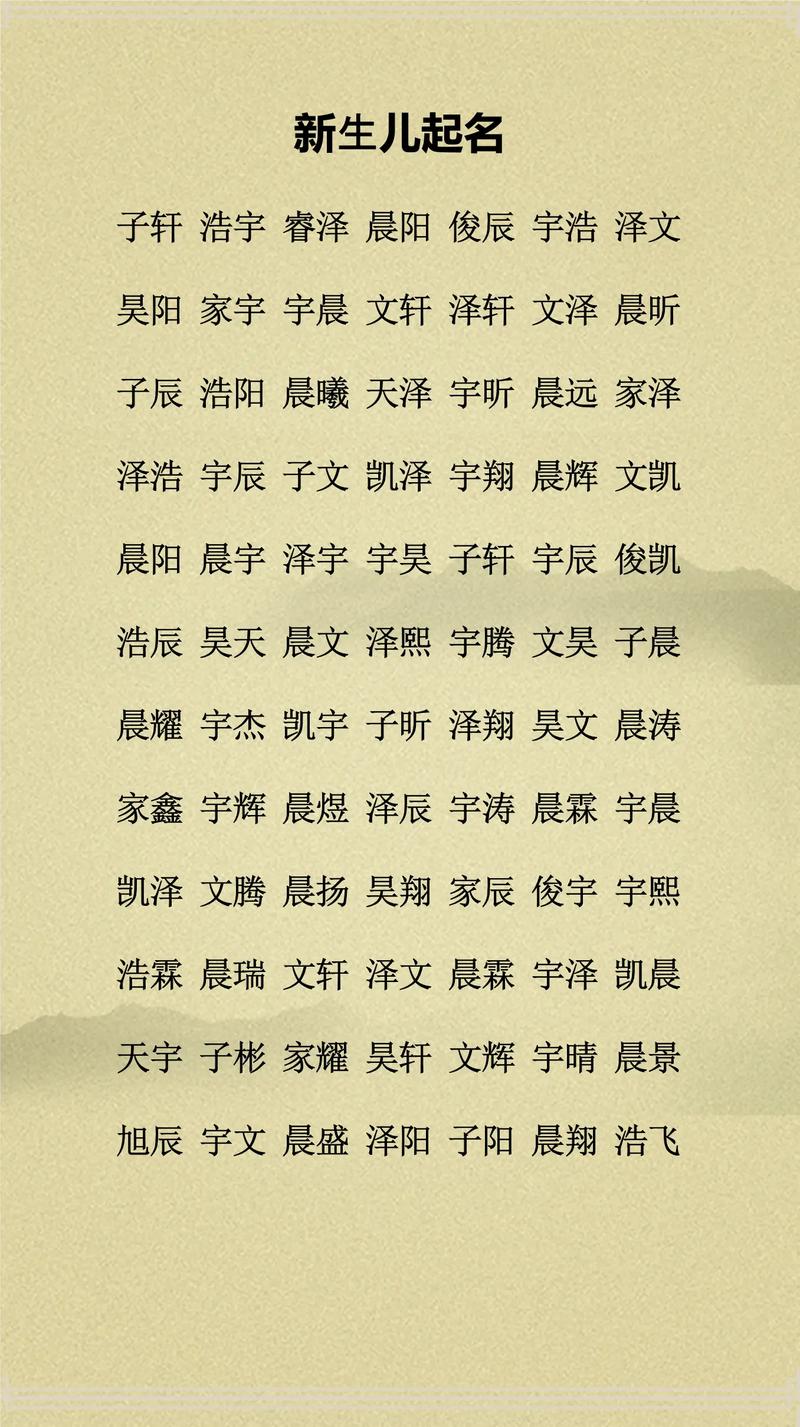 新生儿起名
子轩 浩宇 睿泽 晨阳 俊辰 宇浩 泽文
昊阳 家宇 宇晨 文轩 泽轩 文泽 晨昕
子辰 浩阳 晨曦 天泽 宇昕 晨远 家泽
泽浩 宇辰 子文 凯泽 宇翔 晨辉 文凯
晨阳 晨宇 泽宇 宇昊 子轩 宇辰 俊凯
浩辰 昊天 晨文 泽熙 宇腾 文昊 子晨
晨耀 宇杰 凯宇 子昕 泽翔 昊文 晨涛
家鑫 宇辉 晨煜 泽辰 宇涛 晨霖 宇晨
凯泽 文腾 晨扬 昊翔 家辰 俊宇 宇熙
浩霖 晨瑞 文轩 泽文 晨霖 宇泽 凯晨
天宇 子彬 家耀 昊轩 文辉 宇晴 晨景
旭辰 宇文 晨盛 泽阳 子阳 晨翔 浩飞